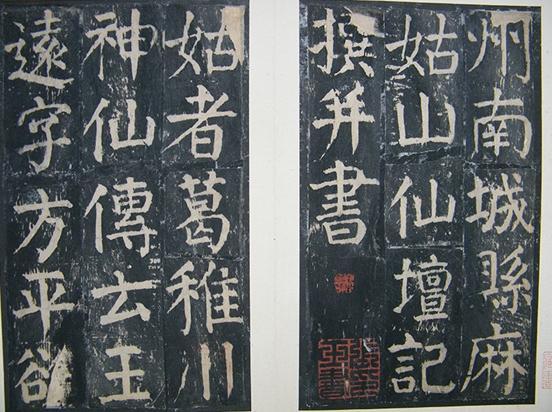 州南城縣麻
姑山仙壇記
撰并書
姑者葛稚川
神仙傳云王
遠字方平欲